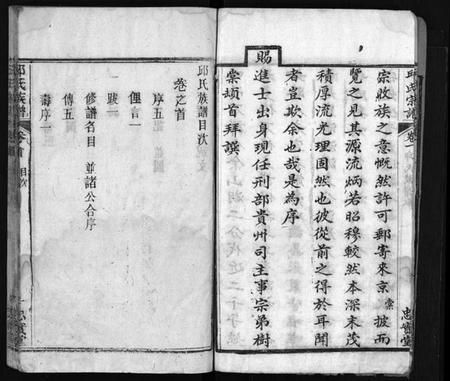 邱氏宗譜
卷
忠實堂
宗敦族之意慨然許可郵寄來京棠披而
覽之見其源流炳若昭穆較然本深末茂
積厚流光理固然也彼從前之得於耳聞
者豈欺余也哉是為序
賜進士出身現任刑部貴州司主事宗弟樹
棠頡首拜譔
邱氏族譜目次
卷之首
序五
俚言一
跋二
修譜名目 並諸公合序
傳五
壽序一
邱氏族譜
卷首
目次
忠實堂